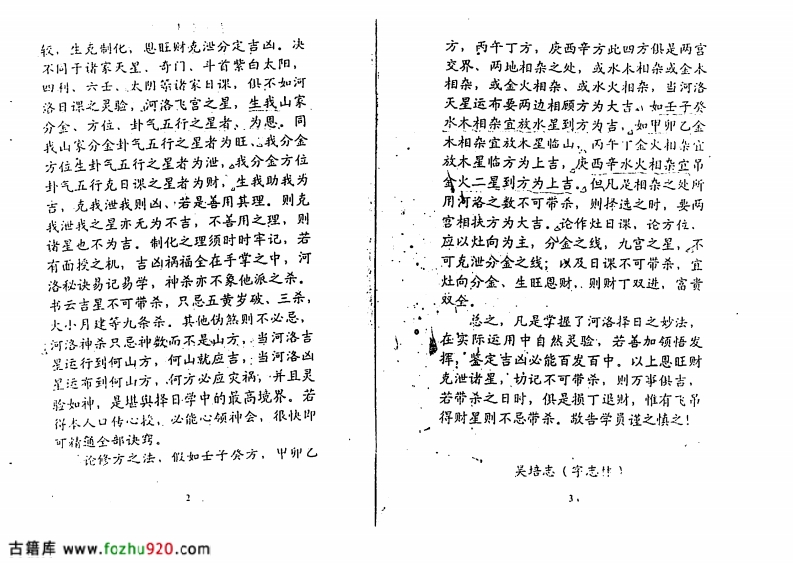 较，生克制化，恩旺财克泄分定吉凶。决
不同于诸家天星、奇门、斗首紫白太阳，
四利、六壬、太阴等诸家日课，俱不如河
洛日课之灵验，河洛飞宫之星，生我山家
分金、方位、卦气五行之星者，为恩。同
我山家分金卦气五行之星者为旺，我分金
方位生卦气五行之星者为泄，我分金方位
卦气五行克日课之星者为财，生我助我为
吉，克我泄我则凶，若是善用其理。则克
我泄我之星亦无为不吉，不善用之理，则
诸星也不为吉。制化之理须时时牢记，若
有面授之机，吉凶祸福全在手掌之中，河
洛秘诀易记易学，神杀亦不象他派之杀。
书云吉星不可带杀，只忌五黄岁破、三杀，
大小月建等九条杀。其他伪煞则不必忌，
河洛神杀只忌神数而不是山方，当河洛吉
星运行到何山方，何山就应吉，当河洛凶
星运布到何山方，何方必应灾祸，并且灵
验如神，是堪舆择日学中的最高境界。若
得本人口传心授，必能心领神会，很快即
可精通全部诀窍。
论修方之法，假如壬子癸方，甲卯乙
2
方，丙午丁方，庚酉辛方此四方俱是两宫
交界、两地相杂之处，或水木相杂或金木
相杂，或火金相杂、或水火相杂，当河洛
天星运布要两边相顾方为大吉。如壬子癸
水木相杂宜放水星到方为吉，如甲卯乙金
木相杂宜放木星临山，丙午丁金火相杂宜
放木星临方为上吉，庚酉辛水火相杂宜吊
金火二星到方为上吉。但凡是相杂之处所
用河洛之数不可带杀，则择选之时，要两
宫相扶方为大吉。论作灶日课，论方位、
应以灶向为主，分金之线，九宫之星，不
可克泄分金之线；以及日课不可带杀，宜
灶向分金、生旺恩财、则财丁双进，富贵
双全。
总之，凡是掌握了河洛择日之妙法，
在实际运用中自然灵验，若善加领悟发
挥，鉴定吉凶必能百发百中。以上恩旺财
克泄诸星，切记不可带杀，则万事俱吉，
若带杀之日时，俱是损丁退财，惟有飞吊
得财星则不忌带杀。敬告学员谨之慎之！
吴培志（字志）
3
古籍库 www.fozhu920.com